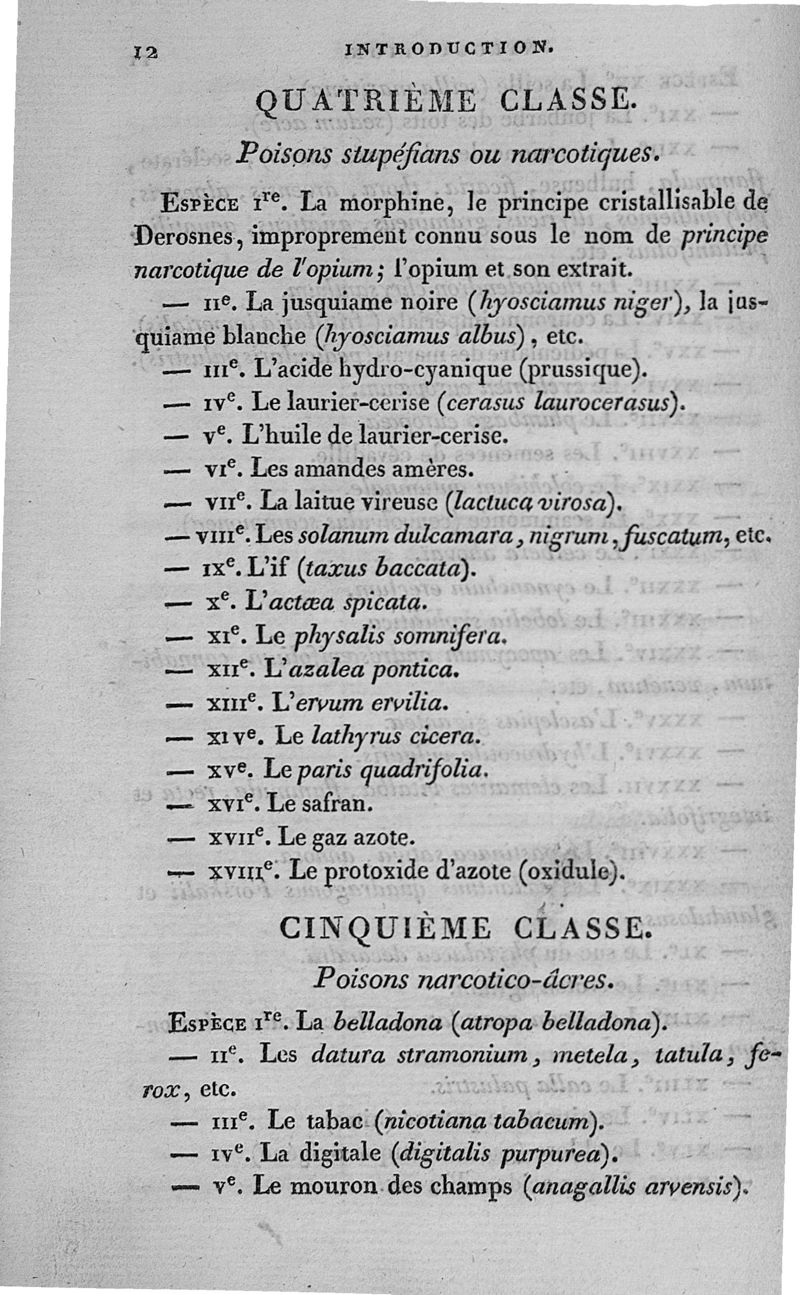 12 INTRODUCTION.
QUATRIÈME CLASSE.
Poisons stupéfians ou narcotiques.
ESPÈCE Iʳᵉ. La morphine, le principe cristallisable de
Derosnes, improprement connu sous le nom de principe
narcotique de l'opium; l'opium et son extrait.
— IIᵉ. La jusquiame noire (hyosciamus niger), la jus-
quiame blanche (hyosciamus albus), etc.
— IIIᵉ. L'acide hydro-cyanique (prussique).
— IVᵉ. Le laurier-cerise (cerasus laurocerasus).
— Vᵉ. L'huile de laurier-cerise.
— VIᵉ. Les amandes amères.
— VIIᵉ. La laitue vireuse (lactuca virosa).
— VIIIᵉ. Les solanum dulcamara, nigrum, fuscatum, etc.
— IXᵉ. L'if (taxus baccata).
— Xᵉ. L'actæa spicata.
— XIᵉ. Le physalis somnifera.
— XIIᵉ. L'azalea pontica.
— XIIIᵉ. L'ervum ervilia.
— XIVᵉ. Le lathyrus cicera.
— XVᵉ. Le paris quadrifolia.
— XVIᵉ. Le safran.
— XVIIᵉ. Le gaz azote.
— XVIIIᵉ. Le protoxide d'azote (oxidule).
CINQUIÈME CLASSE.
Poisons narcotico-âcres.
ESPÈCE Iʳᵉ. La belladona (atropa belladona).
— IIᵉ. Les datura stramonium, metela, tatula, fe-
rox, etc.
— IIIᵉ. Le tabac (nicotiana tabacum).
— IVᵉ. La digitale (digitalis purpurea).
— Vᵉ. Le mouron des champs (anagallis arvensis).